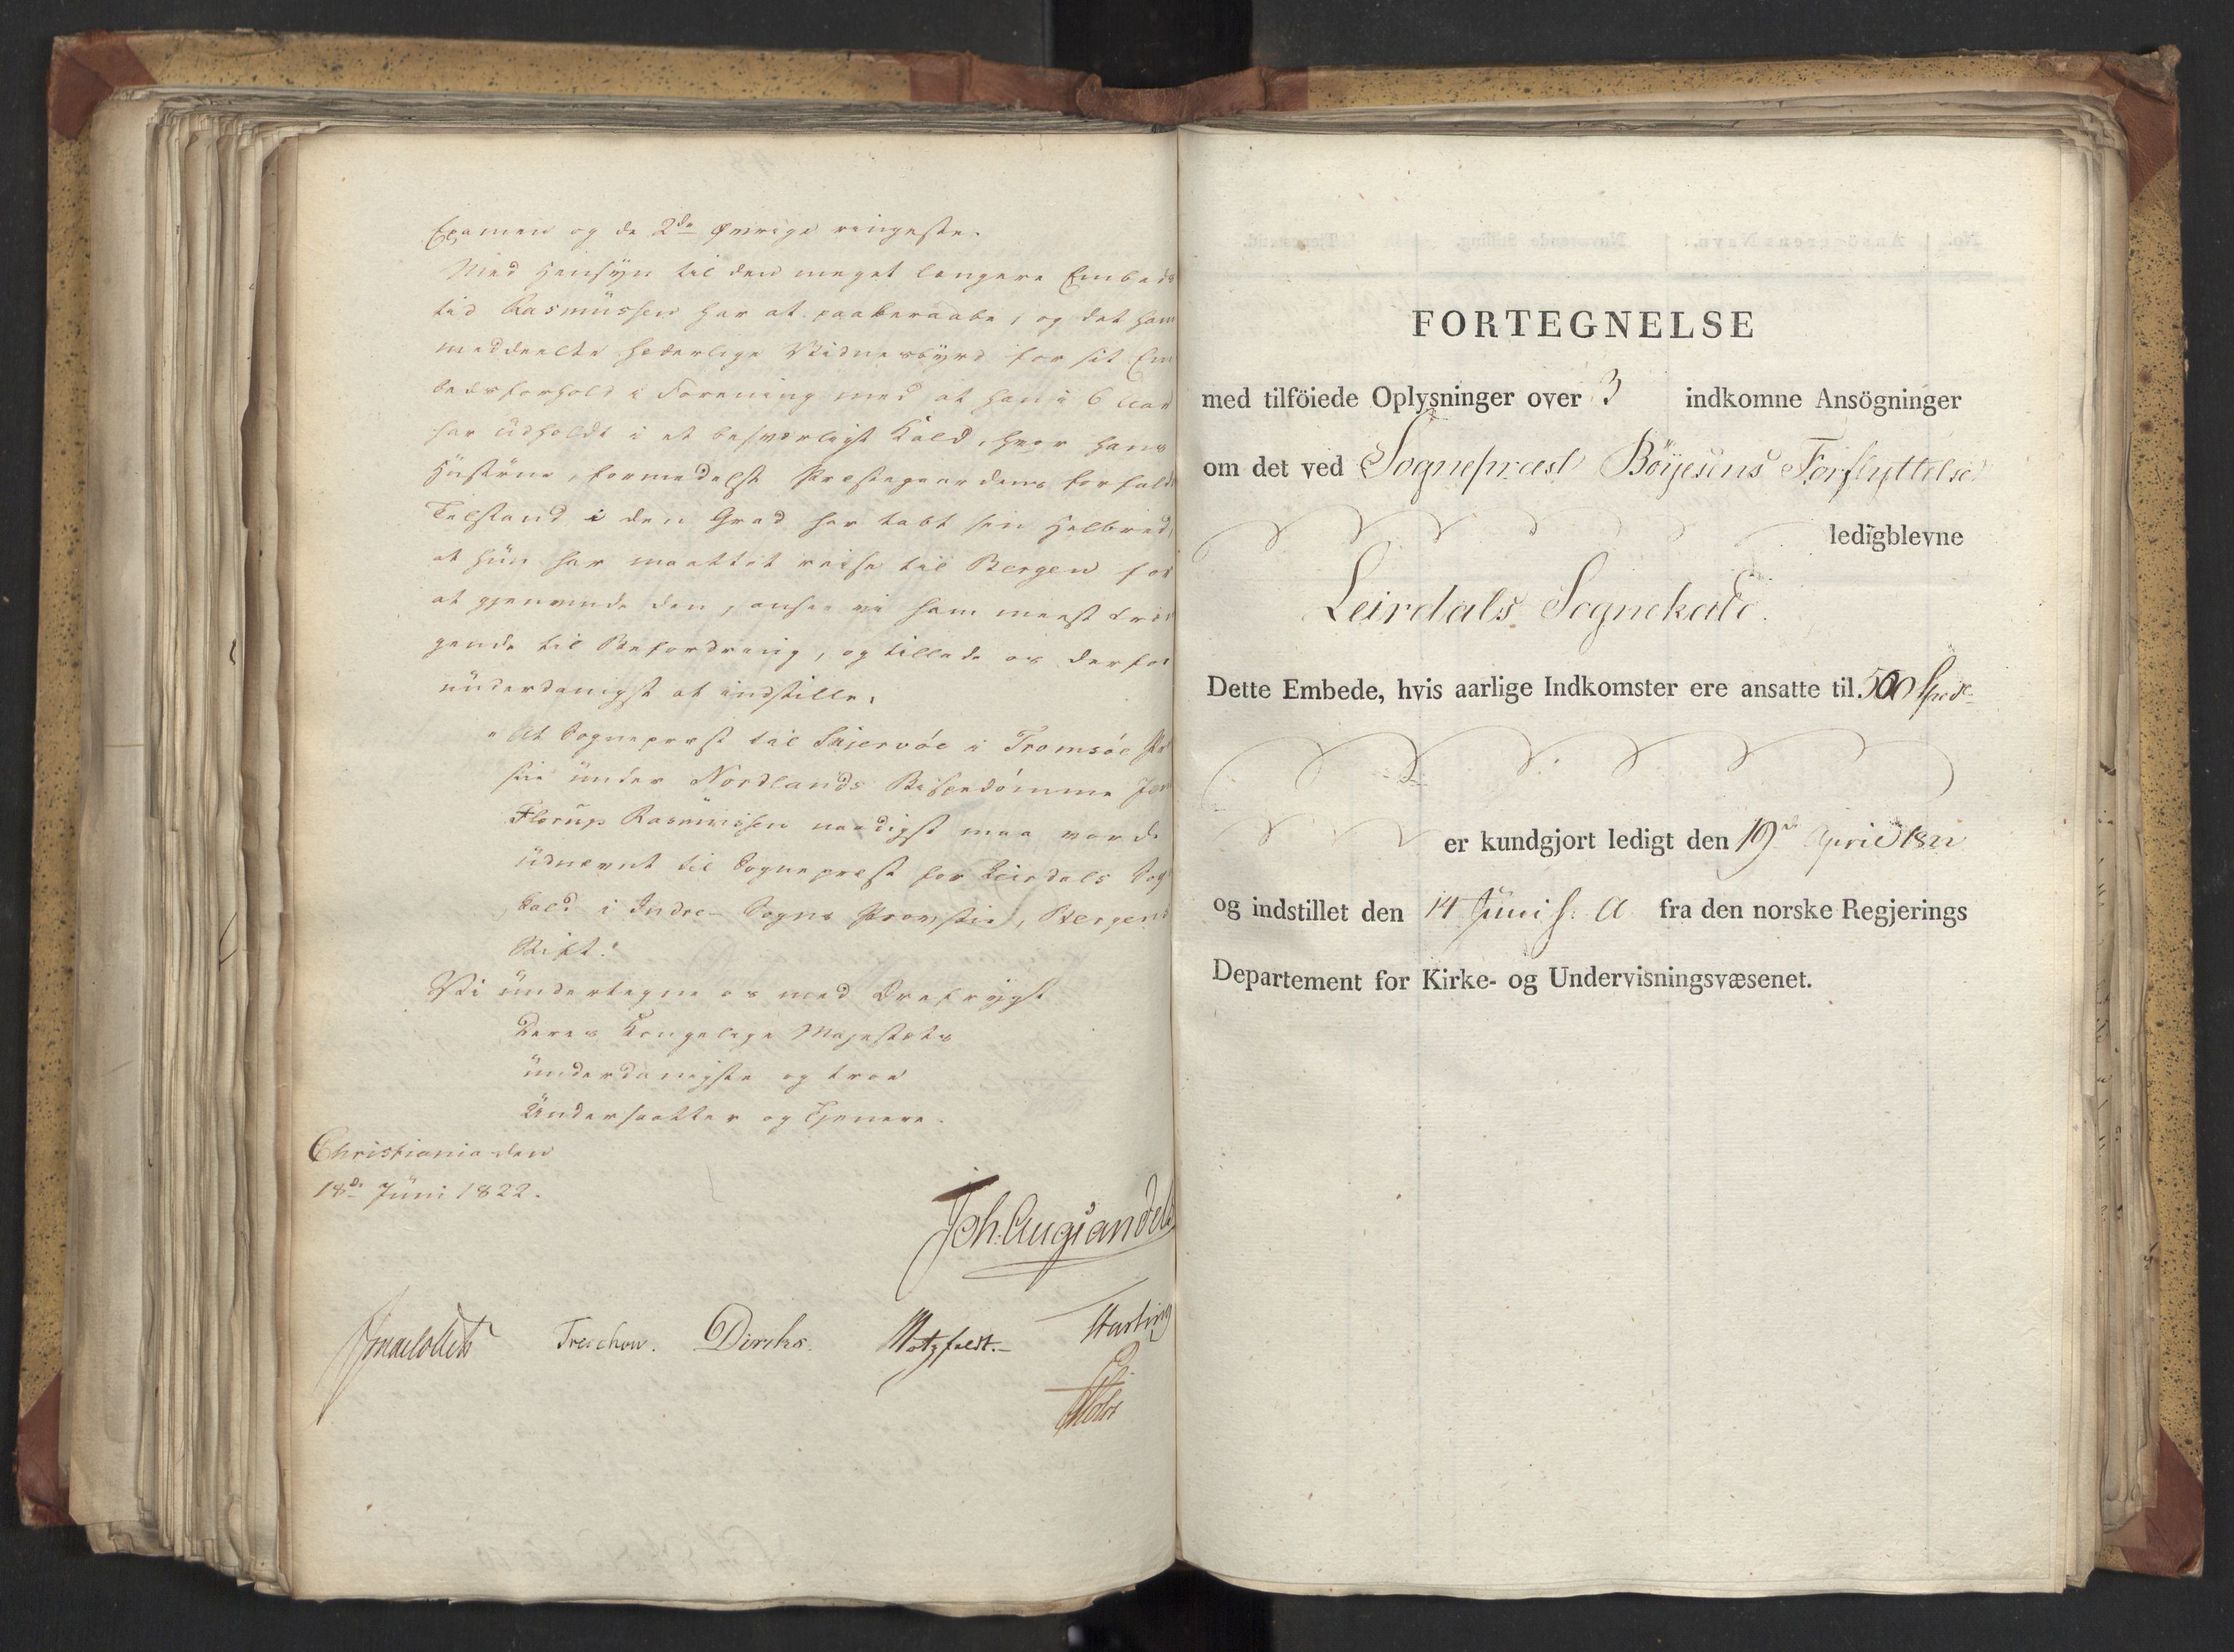 Examen og de 2de øvrige ringeste.
Med Hensyn til den meget længere Embeds
tid Rasmüssen har at paaberaabe, og det ham
meddeelte hæderlige Vidnesbyrd for sit Em
bedsforhold i Forening med at han i 6 Aar
har üdholdt i et besværligt Kald, hvor hans
Hüstrüe, formedelst Præstegaardens forfaldne
Tilstand i den Grad har tabt sin Helbred,
at hün har maattet reise til Bergen for
at gjenvinde den, ansee vi ham meest træn
gende til Befordring, og tillade os derfor
ünderdanigst at indstille,
"At Sognepræst til Skjervöe i Tromsöe Pro
stie ünder Nordlands Bispedömme Jens
Florup Rasmüssen naadigst maa vorde
üdnævnt til Sognepræst for Leirdals Sog
kald i Indre- Sogns Provstie, Bergens
Stift."
Vi ündertegne os med Ærefrygt
Deres Kongelige Majestæts
ünderdanigste og troe
Ündersaatter og Tjenere.
Christiania den
18de Jüni 1822.
Joh: Aug: Sandels
Treschow. Diriks. Motzfeldt.-
FORTEGNELSE
med tilföiede Oplysninger over 3 indkomne Ansögninger
om det ved Sognepræst Böyesens Forflyttelse
ledigblevne
Leirdals Sognekald.
Dette Embede, hvis aarlige Indkomster ere ansatte til 500 Spd
er kundgjort ledigt den 19de April 1822
og indstillet den 14 Juni s. A fra den norske Regjerings
Departement for Kirke- og Undervisningsvæsenet.